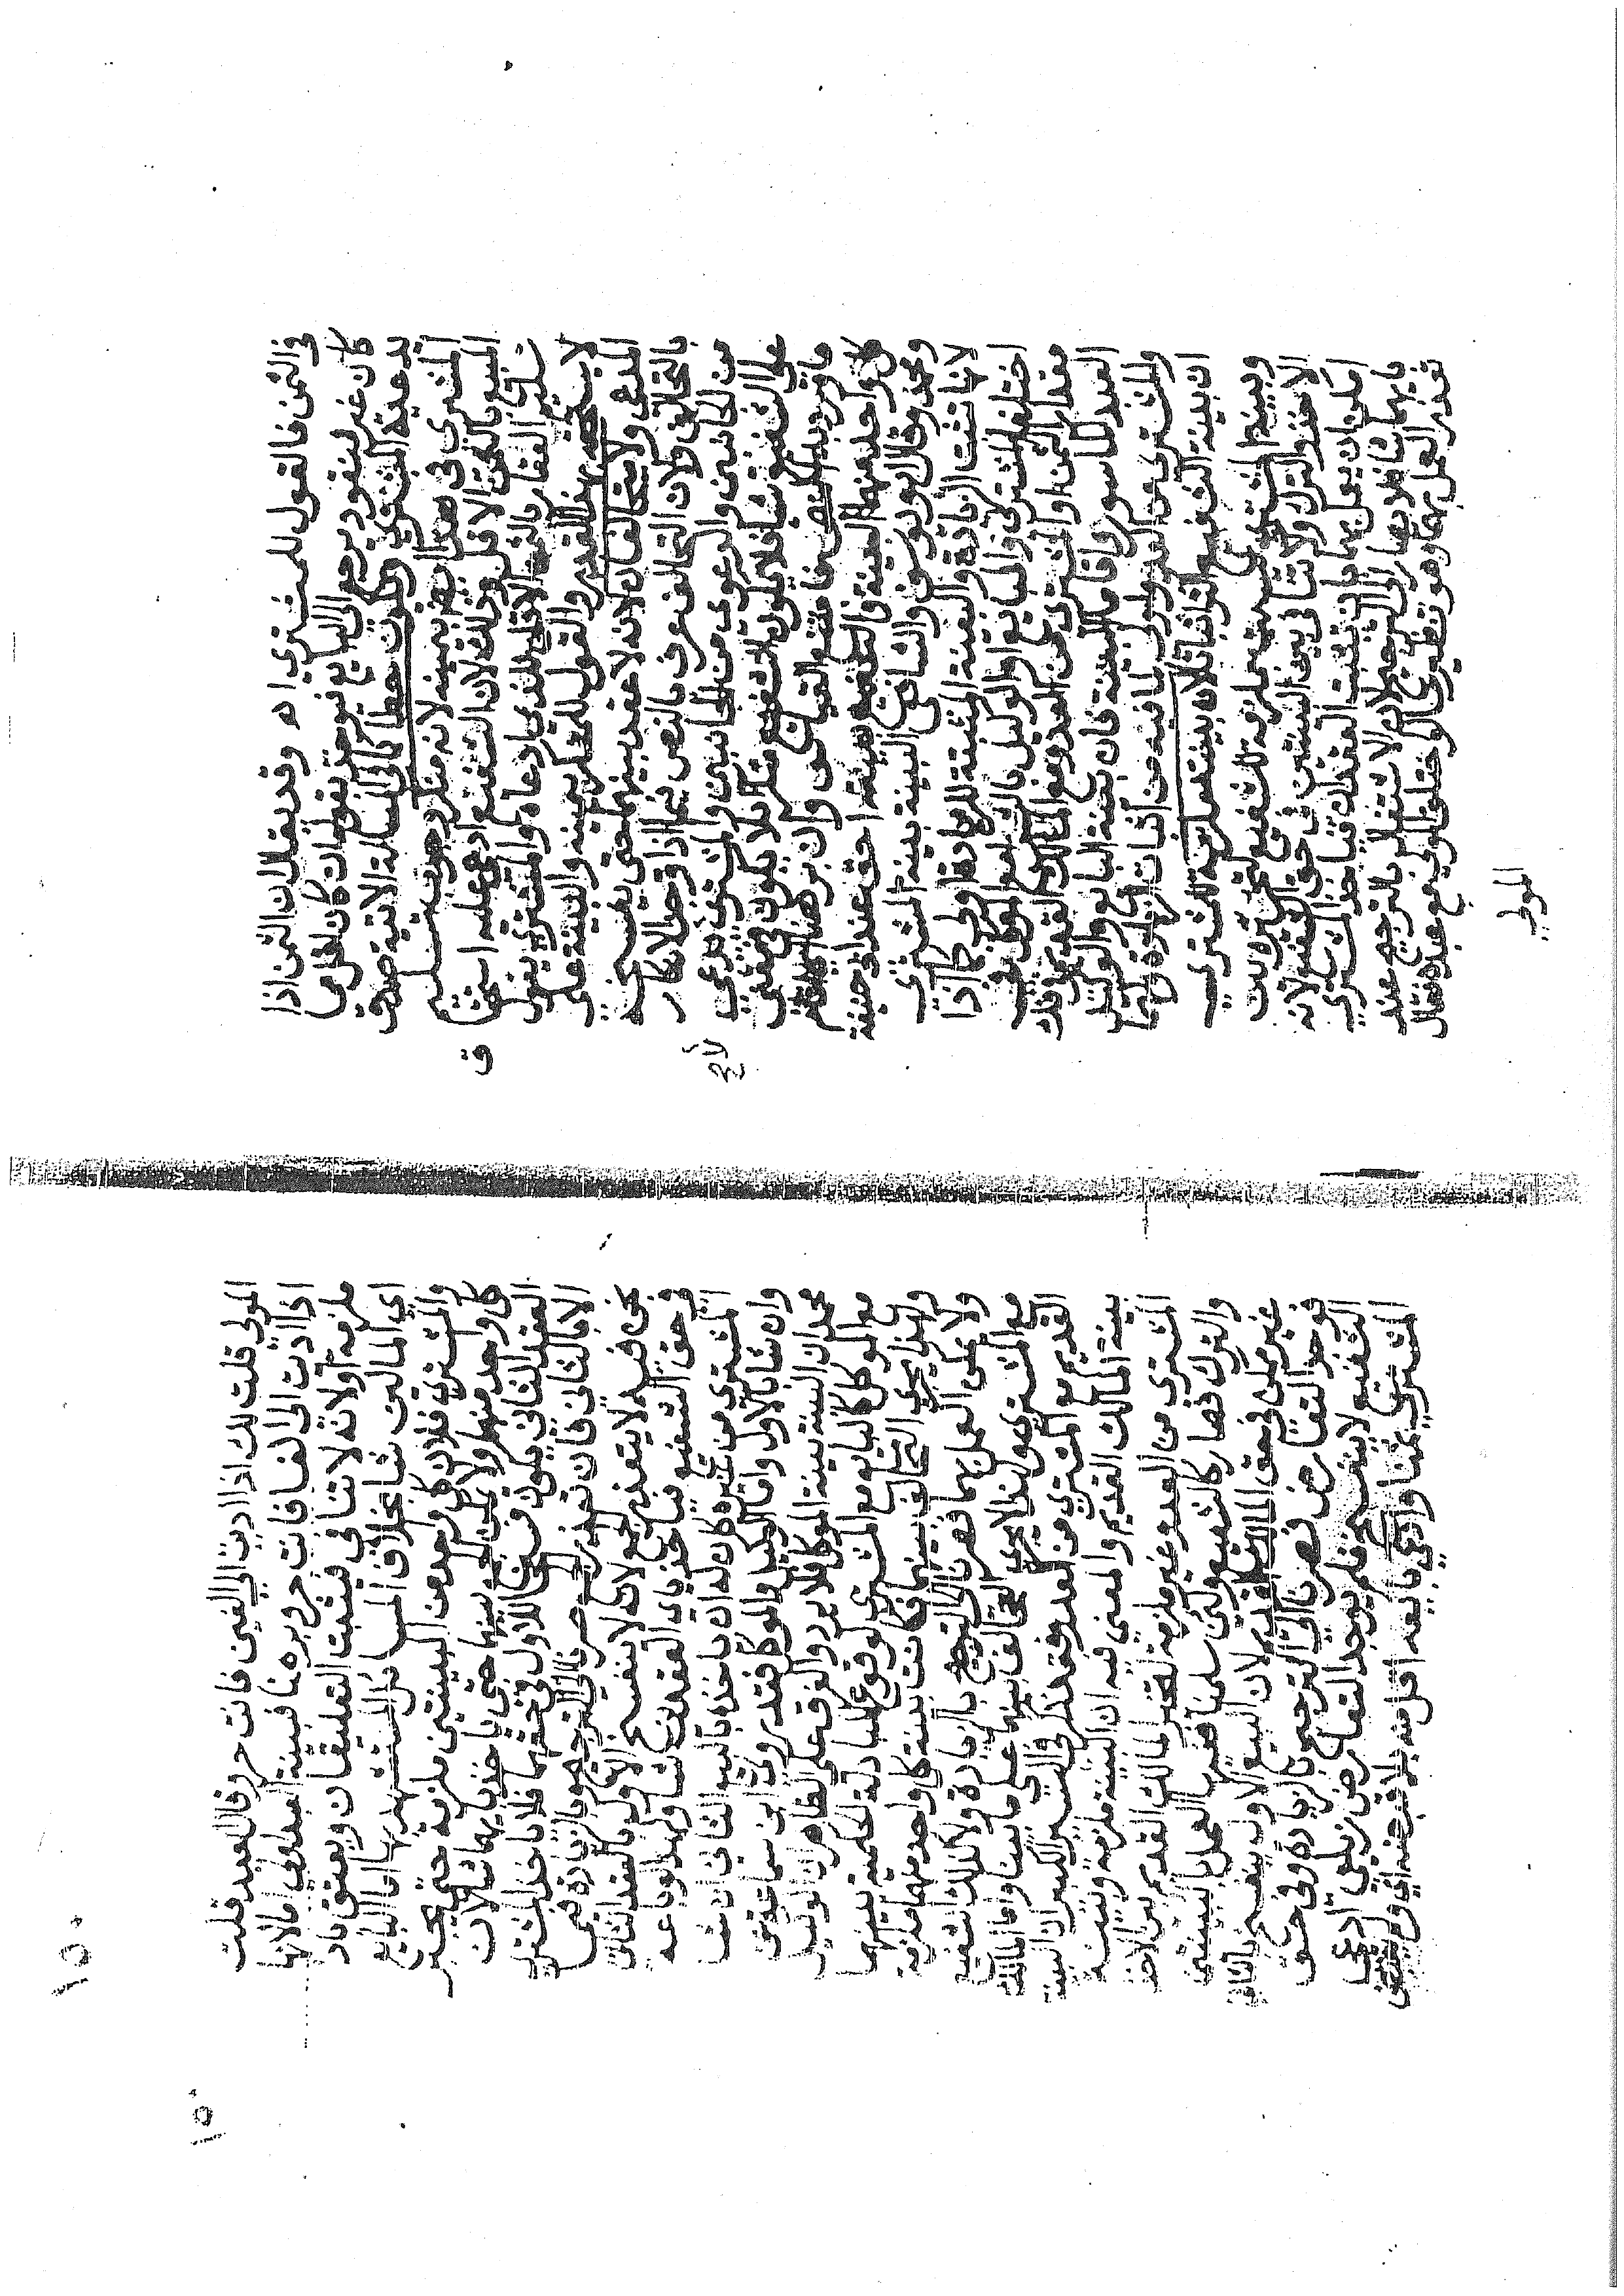 في الثمن فالقول للمشتري اه وقد يقال ان الثمن اذا
كان غير منقود يرجع الى البايع فيوخذ بقوله ان كان اقل مما
يدعيه المشتري ويكون حطا كما في المسئلة الاتية صدق
المشتري في هذا بيمينه لانه منكر وجوب تسليم
المبيع بالثمن الاقل وذلك لان الشفيع ادعى عليه استحقاق
تسليم العقار بالثمن الاقل الذي ادعاه والمشتري يقول
لا يستحقه بهذا القدر والقول للمنكر بيمينه والبينة على
المدعي ولا يتحالفان لانه لا عقد بينهما حتى يفسخ
بالتحالف ولان التحالف عرف بالنص فيما اذا وجد الانكار
من الجانبين والدعوى من الجانبين والمشتري لا يدعي
على الشفيع شيا فلا يكون الشفيع منكرا فلا يكون في معنى
ما ورد به النص فامتنع القياس وان برهنا اي اقام
كل واحد منهما البينة فالشفيع بينته احق عند ابي حنيفة
ومحمد وقال ابو يوسف والشافعي البينة بينة المشتري
لانها تثبت الزيادة والبينة المثبتة للزيادة اولى كما اذا
اختلف المشتري والبايع او الوكيل بالشراء مع الموكل في
مقدار الثمن او المشتري من العدو مع المالك القديم في ثمن
العبد الماسور واقاما البينة فان بينة البايع والوكيل
والمشتري من العدو اولى لما فيه من اثبات الزيادة ولهما
ان بينة الشفيع اكثر اثباتا لان بينته ملزمة للمشتري
وبينة المشتري غير ملزمة للشفيع لتخيره بين
الاخذ والترك ولا تنافي بين البينتين في حق الشفيع لانه
امكن ان يعمل بهما بان تثبت العقدان فياخذ المشتري
بايهما شا فلا يصار الى الترجيح لان الاشتغال بالترجيح عند
تعذر العمل بهما وهو نظير ما لو اختلف المولي مع عبده فقال
المولي
١٥٠
١٥٠
المولي قلت لك اذا اديت الي الفين فانت حر وقال العبد قلت
اذا اديت الي الفا فانت حر وبرهنا فبينة العبد اولي اما لانها
ملزمة او لانه لا تنافي فيثبت التعليقان ويعتق باد
اي المالين شا بخلاف المسائل المستشهد بها اما البايع
والمشتري فلان كل واحد من البينتين ملزمة حتى يجبر
كل واحد منهما ولا يمكن الجمع بينهما حتى ياخذ بايهما شا لان
العقد الثاني يكون فسخا للاول في حقهما فلا ياخذ المشتري
الا بالثاني فان تعذر الجمع صرنا الى الترجيح بالزيادة فيما
نحن فيه لا يتعذر الجمع لانه لا ينفسخ الاول بالعقد الثاني
في حق الشفيع فياخذ باي العقدين شا ولهذا لو باعه
المشتري من غيره كان له ان ياخذه بالبيع الثاني ان شا
وان شا بالاول واما الوكيل والموكل فقد روى ابن سماعة عن
محمد ان البينة بينة الموكل فلا يرد والفرق علي الظاهر ان الوكيل
مع الموكل كالبايع مع المشتري لوقوع المبادلة الحكمية بينهما
ولهذا يجري التحالف بينهما فكانت بينة كل واحد منهما ملزمة
ولا يمكن العمل بهما فصرنا الى الترجيح بالزيادة ولا كذلك الشفيع
مع المشتري ولهذا لا يجري التحالف بينهما علي ما بينا واما المالك
القديم مع المشتري من العدو فقد ذكر في السير الكبير ان البينة
بينة المالك القديم والمعني فيه ان البينة ملزمة وبينة
المشتري من العدو غير ملزمة لتخير المالك القديم بين الاخذ
والترك فصار كالشفيع ولئن سلمنا فنقول العمل بالبينتين
غير ممكن في حق المالك القديم لان البيع الاول ينفسخ بالثاني
فوجد التعارض فصرنا الي الترجيح بالزيادة وفي حق
الشفيع لا ينفسخ فلم يوجد التعارض زيلعي ادعي
المشتري ثمنا وادعي بايعه اقل منه بلا قبضه اي ولم يقبض